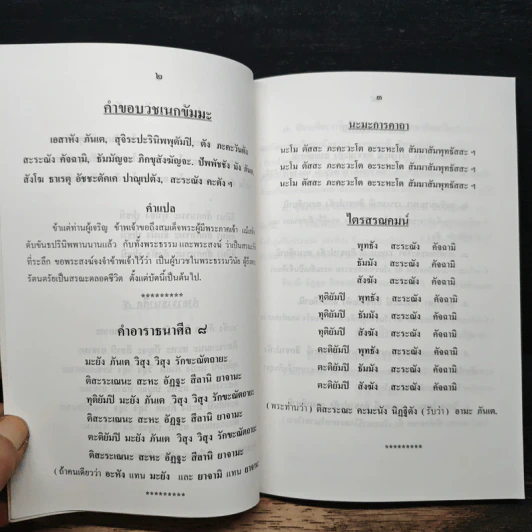 ๒
คำขอบวชเนกขัมมะ
เอสาหัง ภันเต, สุจิระปะรินิพพุตัมปิ, ตัง ภะคะวันตัง
สะระณัง คัจฉามิ, ธัมมัญจะ ภิกขุสังฆัญจะ, ปัพพัชชัง มัง ภันเต
สังโฆ ธาเรตุ อัชชะตัคเค ปาณุเปตัง, สะระณัง คะตัง ฯ
คำแปล
ข้าแต่ท่านผู้เจริญ ข้าพเจ้าขอถึงสมเด็จพระผู้มีพระภาคเจ้า แม้เสด็จ
ดับขันธปรินิพพานนานแล้ว กับทั้งพระธรรม และพระสงฆ์ ว่าเป็นสรณะ
ที่ระลึก ขอพระสงฆ์จงจำข้าพเจ้าไว้ว่า เป็นผู้บวชในพระธรรมวินัย ผู้ถึง
รัตนตรัยเป็นสรณะตลอดชีวิต ตั้งแต่บัดนี้เป็นต้นไป.
*********
คำอาราธนาศีล ๘
มะยัง ภันเต วิสุง วิสุง รักขะณัตถายะ
ติสะระเณนะ สะหะ อัฏฐะ สีลานิ ยาจามะ
ทุติยัมปิ มะยัง ภันเต วิสุง วิสุง รักขะณัตถายะ
ติสะระเณนะ สะหะ อัฏฐะ สีลานิ ยาจามะ
ตะติยัมปิ มะยัง ภันเต วิสุง วิสุง รักขะณัตถายะ
ติสะระเณนะ สะหะ อัฏฐะ สีลานิ ยาจามะ
(ถ้าคนเดียวว่า อะหัง แทน มะยัง และ ยาจามิ แทน ยาจามะ)
*********
๓
นะมะการคาถา
นะโม ตัสสะ ภะคะวะโต อะระหะโต สัมมาสัมพุทธัสสะ ฯ
นะโม ตัสสะ ภะคะวะโต อะระหะโต สัมมาสัมพุทธัสสะ ฯ
นะโม ตัสสะ ภะคะวะโต อะระหะโต สัมมาสัมพุทธัสสะ ฯ
ไตรสรณคมน์
พุทธัง สะระณัง คัจฉามิ
ธัมมัง สะระณัง คัจฉามิ
สังฆัง สะระณัง คัจฉามิ
ทุติยัมปิ พุทธัง สะระณัง คัจฉามิ
ทุติยัมปิ ธัมมัง สะระณัง คัจฉามิ
ทุติยัมปิ สังฆัง สะระณัง คัจฉามิ
ตะติยัมปิ พุทธัง สะระณัง คัจฉามิ
ตะติยัมปิ ธัมมัง สะระณัง คัจฉามิ
ตะติยัมปิ สังฆัง สะระณัง คัจฉามิ
(พระท่านว่า) ติสะระณะ คะมะนัง นิฏฐิตัง (รับว่า) อามะ ภันเต.
*********